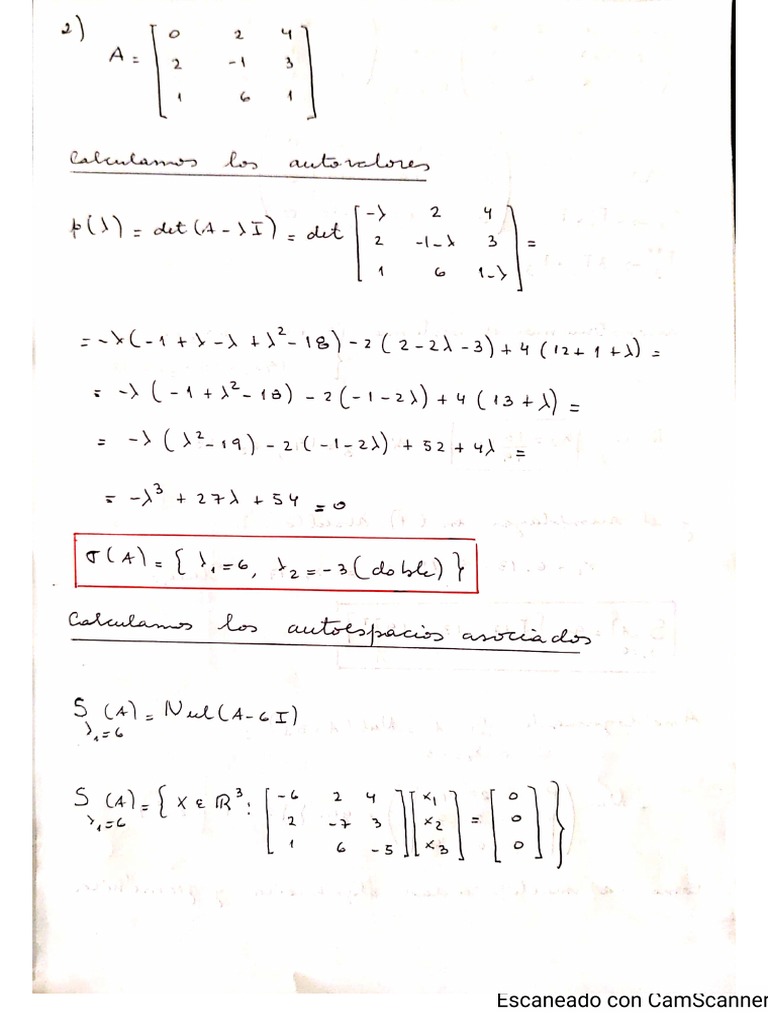 2)
A = [ 0 2 4
2 -1 3
1 6 1 ]
Calculamos los autovalores
p(λ) = det(A - λI) = det [ -λ 2 4
2 -1-λ 3
1 6 1-λ ] =
= -λ(-1 + λ - λ + λ² - 18) - 2(2 - 2λ - 3) + 4(12 + 1 + λ) =
= -λ(-1 + λ² - 18) - 2(-1 - 2λ) + 4(13 + λ) =
= -λ(λ² - 19) - 2(-1 - 2λ) + 52 + 4λ =
= -λ³ + 27λ + 54 = 0
σ(A) = { λ₁ = 6, λ₂ = -3 (doble) }
Calculamos los autoespacios asociados
S_{λ₁=6}(A) = Nul(A - 6I)
S_{λ₁=6}(A) = { X ∈ ℝ³ : [ -6 2 4
2 -7 3
1 6 -5 ] [ x₁
x₂
x₃ ] = [ 0
0
0 ] }
Escaneado con CamScanner